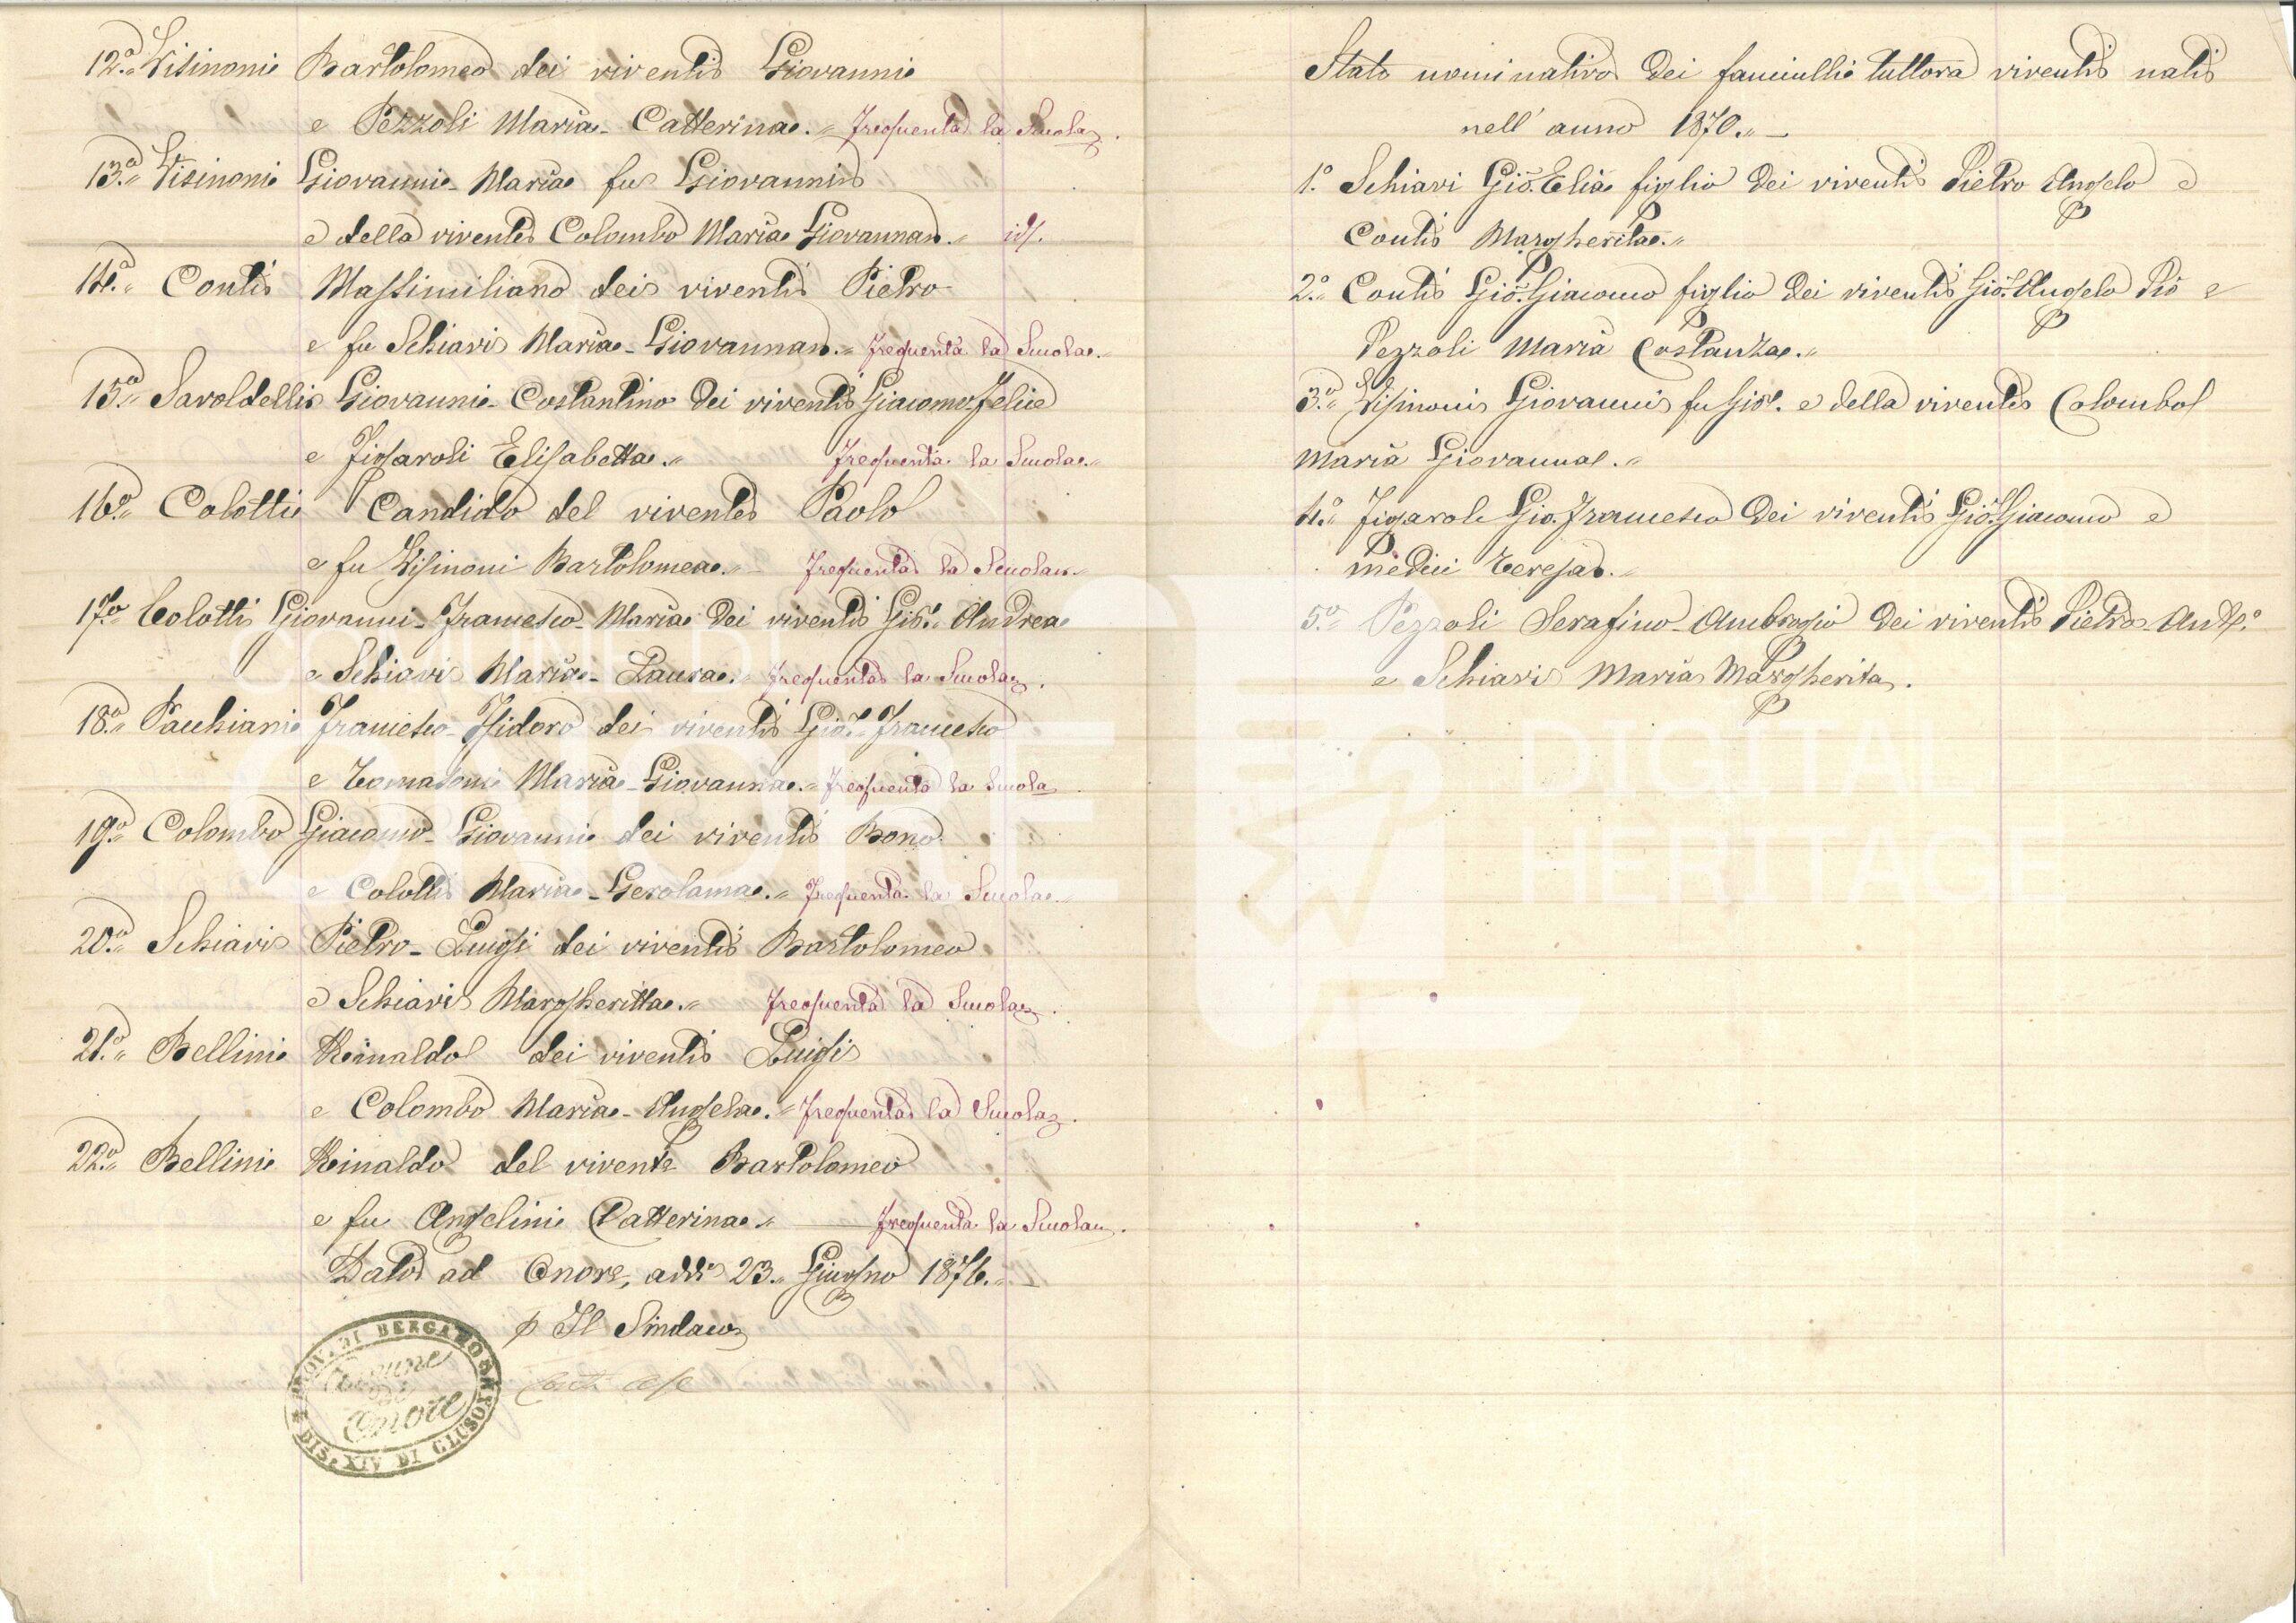 12.° Visinoni Bartolomeo dei viventi Giovanni
e Pezzoli Maria-Catterina. Frequenta la Scuola.
13.° Visinoni Giovanni-Maria fu Giovanni
e della vivente Colombo Maria Giovanna. id.
14.° Conti Massimiliano dei viventi Pietro
e fu Schiavi Maria-Giovanna. Frequenta la Scuola.
15.° Savoldelli Giovanni-Costantino dei viventi Giacomo-Felice
e Figaroli Elisabetta. Frequenta la Scuola.
16.° Colotti Candido del vivente Paolo
e fu Visinoni Bartolomea. Frequenta la Scuola.
17.° Colotti Giovanni-Francesco-Maria dei viventi Gio. Andrea
e Schiavi Maria-Laura. Frequenta la Scuola.
18.° Pacchiani Francesco-Isidoro dei viventi Gio. Francesco
e Tomasoni Maria-Giovanna. Frequenta la Scuola
19.° Colombo Giacomo-Giovanni dei viventi Bono
e Colotti Maria-Gerolama. Frequenta la Scuola.
20.° Schiavi Pietro-Luigi dei viventi Bartolomeo
e Schiavi Margheritta. Frequenta la Scuola.
21.° Bellini Reinaldo dei viventi Luigi
e Colombo Maria-Angela. Frequenta la Scuola.
22.° Bellini Reinaldo del vivente Bartolomeo
e fu Angelini Catterina. Frequenta la Scuola.
Dato ad Onore, addi 23. Giugno 1876.
p Il Sindaco
PROV. DI BERGAMO
Comune
di
Onore
DIS. XIV DI CLUSONE
Stato nominativo dei fanciulli tuttora viventi nati
nell' anno 1870.
1.° Schiavi Gio. Elia figlio dei viventi Pietro Angelo e
Conti Margherita.
2.° Conti Gio. Giacomo figlio dei viventi Gio. Angelo Pio e
Pezzoli Maria Costanza.
3.° Visinoni Giovanni fu Gio. e della vivente Colombo
Maria Giovanna.
4.° Figaroli Gio. Francesco dei viventi Gio. Giacomo e
Medici Teresa.
5.° Pezzoli Serafino-Ambrogio dei viventi Pietro-Ant.°
e Schiavi Maria Margherita.
COMUNE DI
ONORE
DIGITAL
HERITAGE